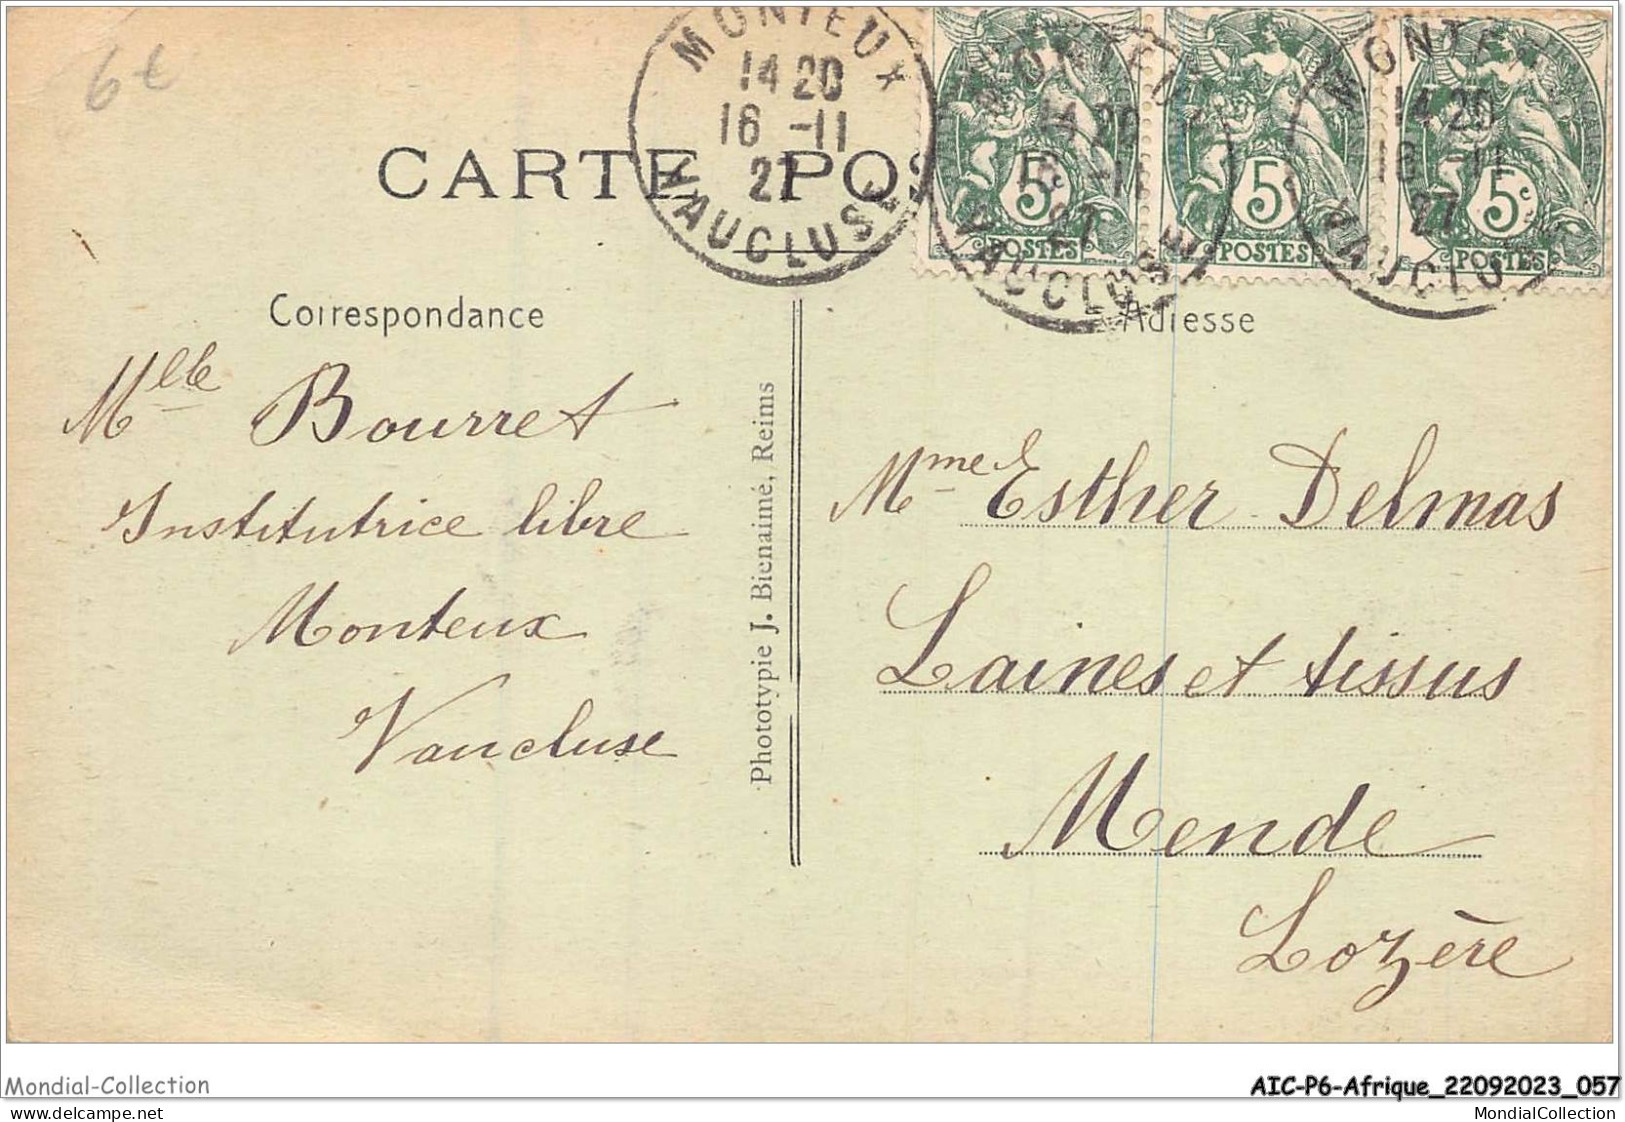 6€
MONTEUX
14 20
16 -11
27
VAUCLUSE
MONTEUX
14 20
16 -11
27
VAUCLUSE
MONTEUX
14 20
16 -11
27
VAUCLUSE
5c
POSTES
5c
POSTES
5c
POSTES
CARTE POS
Correspondance
Adresse
Mlle Bourret
Institutrice libre
Monteux
Vaucluse
Phototypie J. Bienaimé, Reims
Mme Esther Delmas
Laines et tissus
Mende
Lozère
Mondial-Collection
AIC-P6-Afrique_22092023_057
delcampe.net
MondialCollection